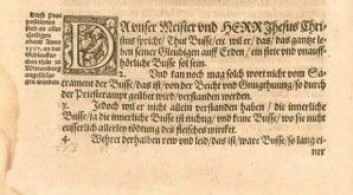 Diese Pro
positiones
sind an aller
Heiligen
abent Anno
1517. an die
Schloskir-
chen thür zu
Wittemberg
angeschla-
gen worden.
DA vnser Meister vnd HERR Jhesus Chri-
stus spricht / Thut Busse / etc wil er / das / das gantze le-
ben seiner Gleubigen auff Erden / ein stete vnd vnauff-
hörliche Busse sol sein.
2. Vnd kan noch mag solch wort nicht vom Sa-
crament der Busse / das ist / von der Beicht vnd Gnugthuung / so durch
der Priesterampt geübet wird / verstanden werden.
3. Jedoch wil er nicht allein verstanden haben / die innerliche
Busse / ja die innerliche Busse ist nichtig / vnd keine Busse / wo sie nicht
eusserlich allerley tödtung des fleisches wircket.
4. Wehret derhalben rew vnd leid / das ist / ware Busse / so lang ei-
ner